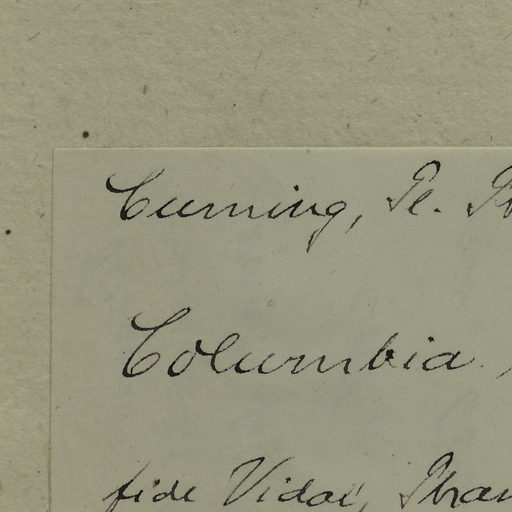 Cuming, Pl. Ph
Columbia
fide Vidal, Phan